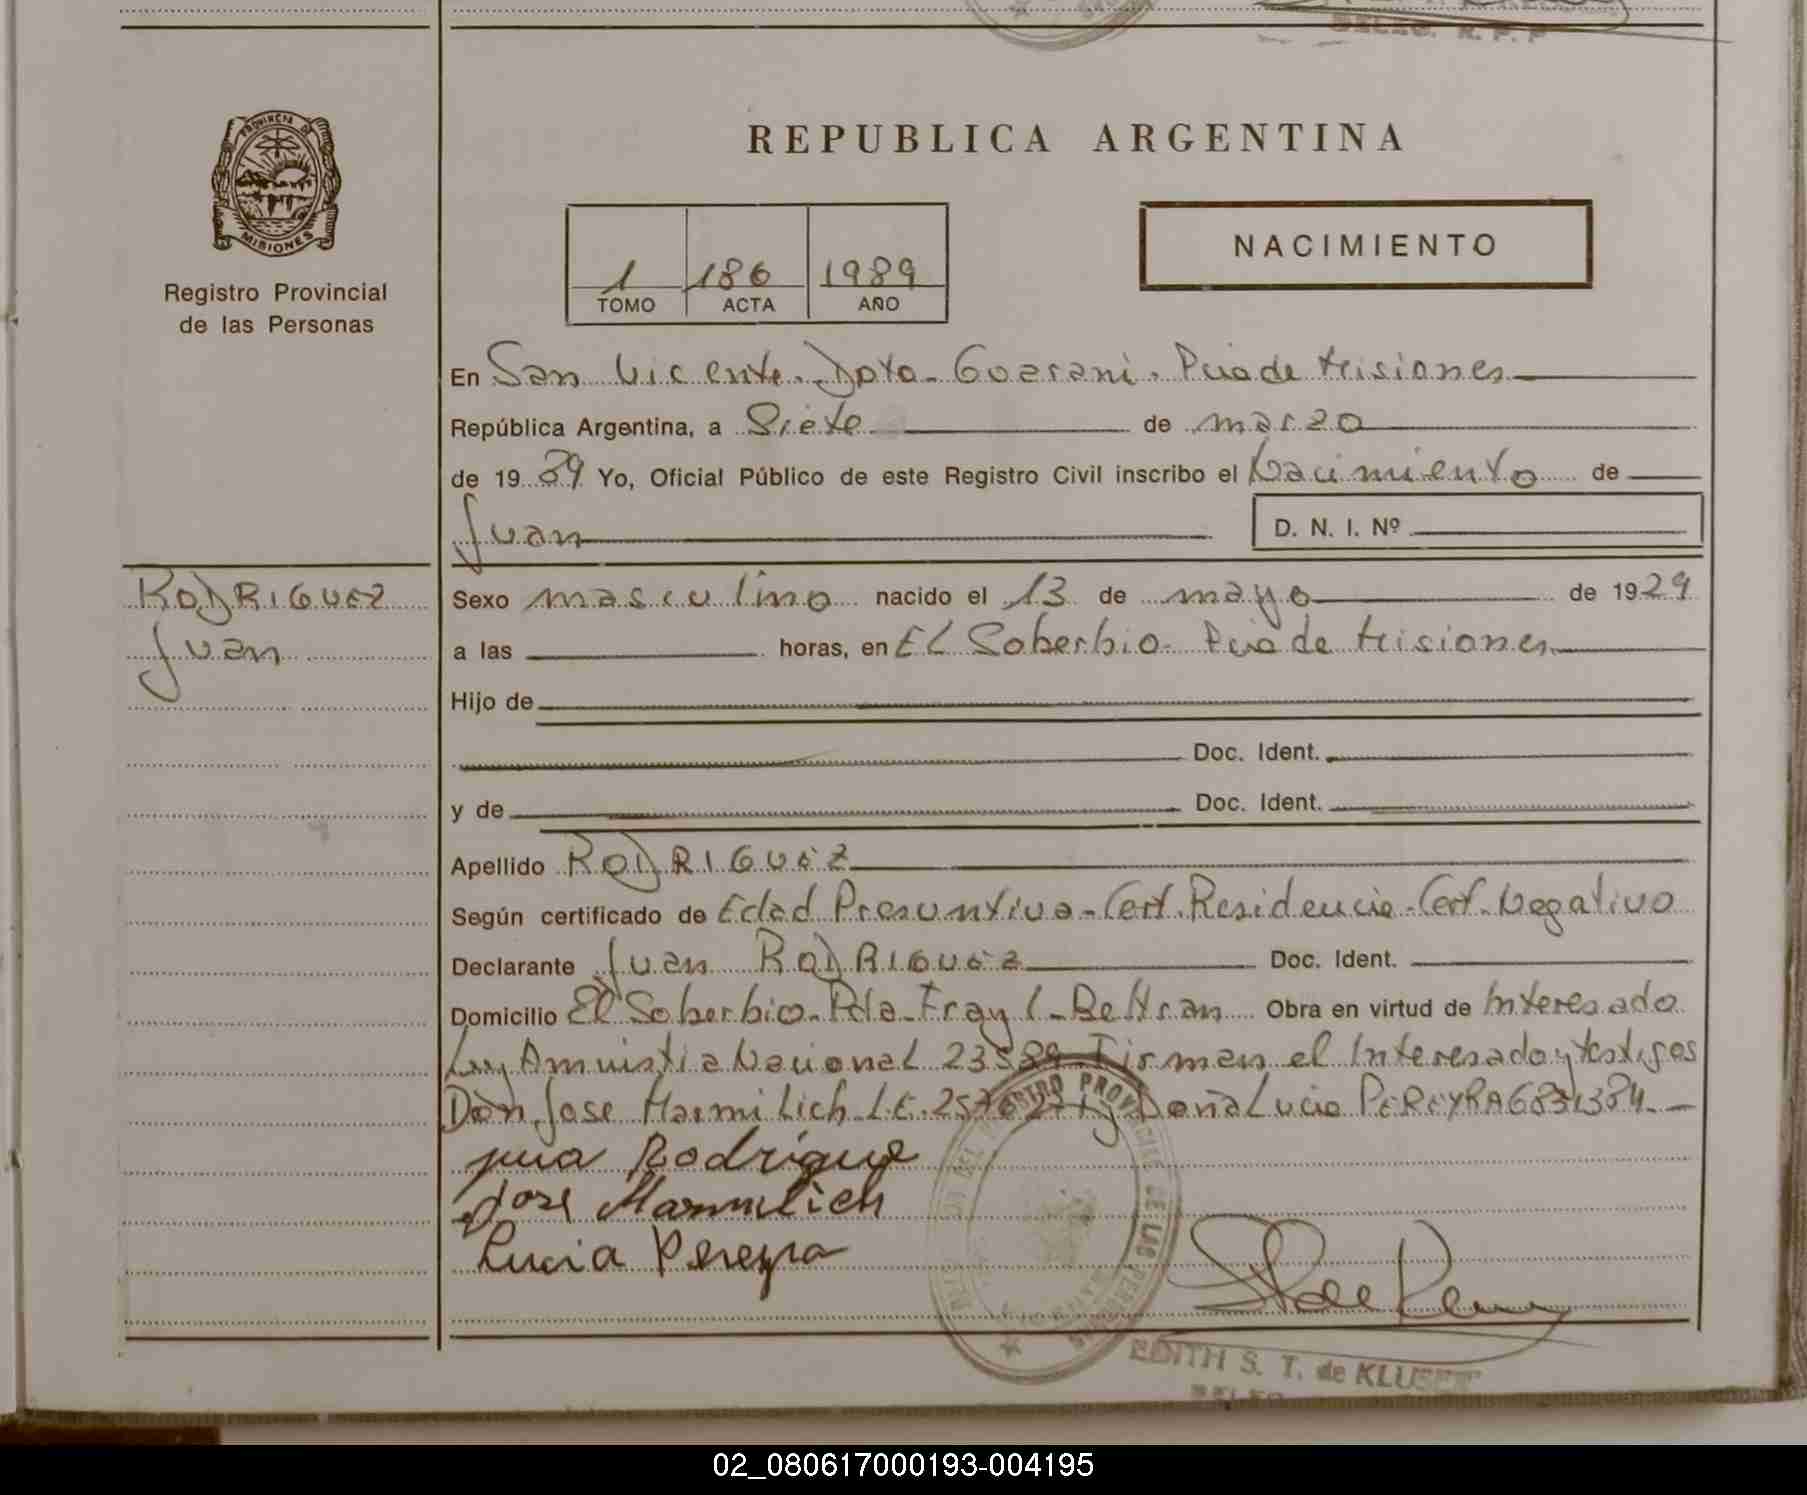 R. P. P
PROVINCIA DE
MISIONES
Registro Provincial
de las Personas
REPUBLICA ARGENTINA
1 186 1989
TOMO ACTA AÑO
NACIMIENTO
En San Vicente. Dpto. Guarani. Pcia de Misiones
República Argentina, a Siete de marzo
de 19 89 Yo, Oficial Público de este Registro Civil inscribo el Nacimiento de
Juan
D. N. I. Nº
RODRIGUEZ
Juan
Sexo masculino nacido el 13 de mayo de 1929
a las horas, en EL Soberbio. Pcia de Misiones
Hijo de
Doc. Ident.
y de Doc. Ident.
Apellido RODRIGUEZ
Según certificado de Edad Presuntiva-Cert. Residencia-Cert. Negativo
Declarante Juan RODRIGUEZ Doc. Ident.
Domicilio El Soberbio. Pda-Fray L-Beltran Obra en virtud de Interesado
Ley Amnistia Nacional 23589 Firman el Interesado y testigos
Don Jose Marmilich L.E. y Doña Lucia PEREYRA
Jua Rodrigue
Jose Marmilich
Lucia Pereyra
EDITH S. T. de
02_080617000193-004195